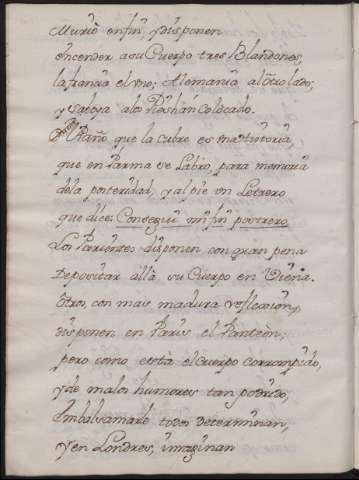 Muriò en fin, y disponen
encender a su Cuerpo tres Blandones,
la francia el uno; Alemania al otro lado;
y saboya a los Pies han colocado.
El Paño que la cubre es una tintoria
que en Parma se Labrò, para memoria
de la posteridad, y al pie un Letrero
que dice: Conseguì mi fin postrero.
Los Parientes disponen con gran pena
Depositar allà su Cuerpo en Viena.
Otros, con mas madura reflección,
disponen en Paris el Panteòn,
pero como està el Cuerpo corrompido,
y de malos humores tan podrido,
Embalsamarlo todos determinan,
y en Londres, imaginan